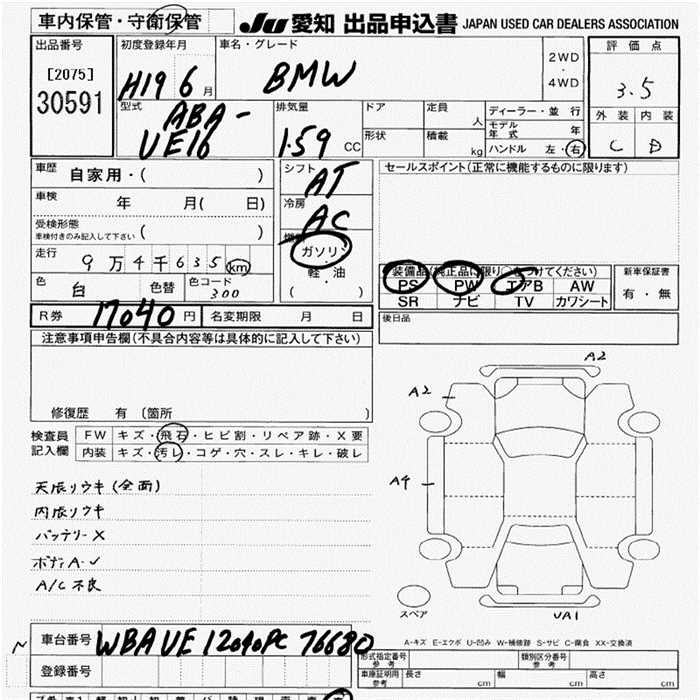 車内保管・守衛保管
JU 愛知 出品申込書 JAPAN USED CAR DEALERS ASSOCIATION
出品番号
[2075]
30591
初度登録年月
H19 6 月
車名・グレード
BMW
2WD
・
4WD
評価点
3.5
外装 内装
C D
型式
ABA-
UE16
排気量
1.59 CC
ドア
定員 人
形状
積載 kg
ディーラー・並行
モデル
年式 年
ハンドル 左・右
車歴
自家用・( )
車検
年 月( 日)
受検形態
車検付きのみ記入して下さい ( )
走行
9万4千635 km
色
白 色替
色コード
300
シフト
AT
冷房
AC
燃料
ガソリン
・
軽・油
( )
セールスポイント(正常に機能するものに限ります)
装備品(純正品に限り○をつけてください)
PS PW エアB AW
SR ナビ TV カワシート
新車保証書
有・無
R券 17040 円 名変期限 月 日
後日品
注意事項申告欄(不具合内容等は具体的に記入して下さい)
修復歴 有 〔箇所 〕
検査員
記入欄
FW キズ・飛石・ヒビ割・リペア跡・X要
内装 キズ・汚レ・コゲ・穴・スレ・キレ・破レ
天張リウキ(全面)
内張リウキ
バッテリーX
ボディA-✓
A/C不良
A2
A2
A4
スペア
UA1
A-キズ E-エクボ U-凹み W-補修跡 S-サビ C-腐食 XX-交換済
車台番号 WBAUE12040PC76680
登録番号
形式指定番号
参考
類別区分番号
参考
車庫証明用
参考
長さ cm 幅 cm 高さ cm